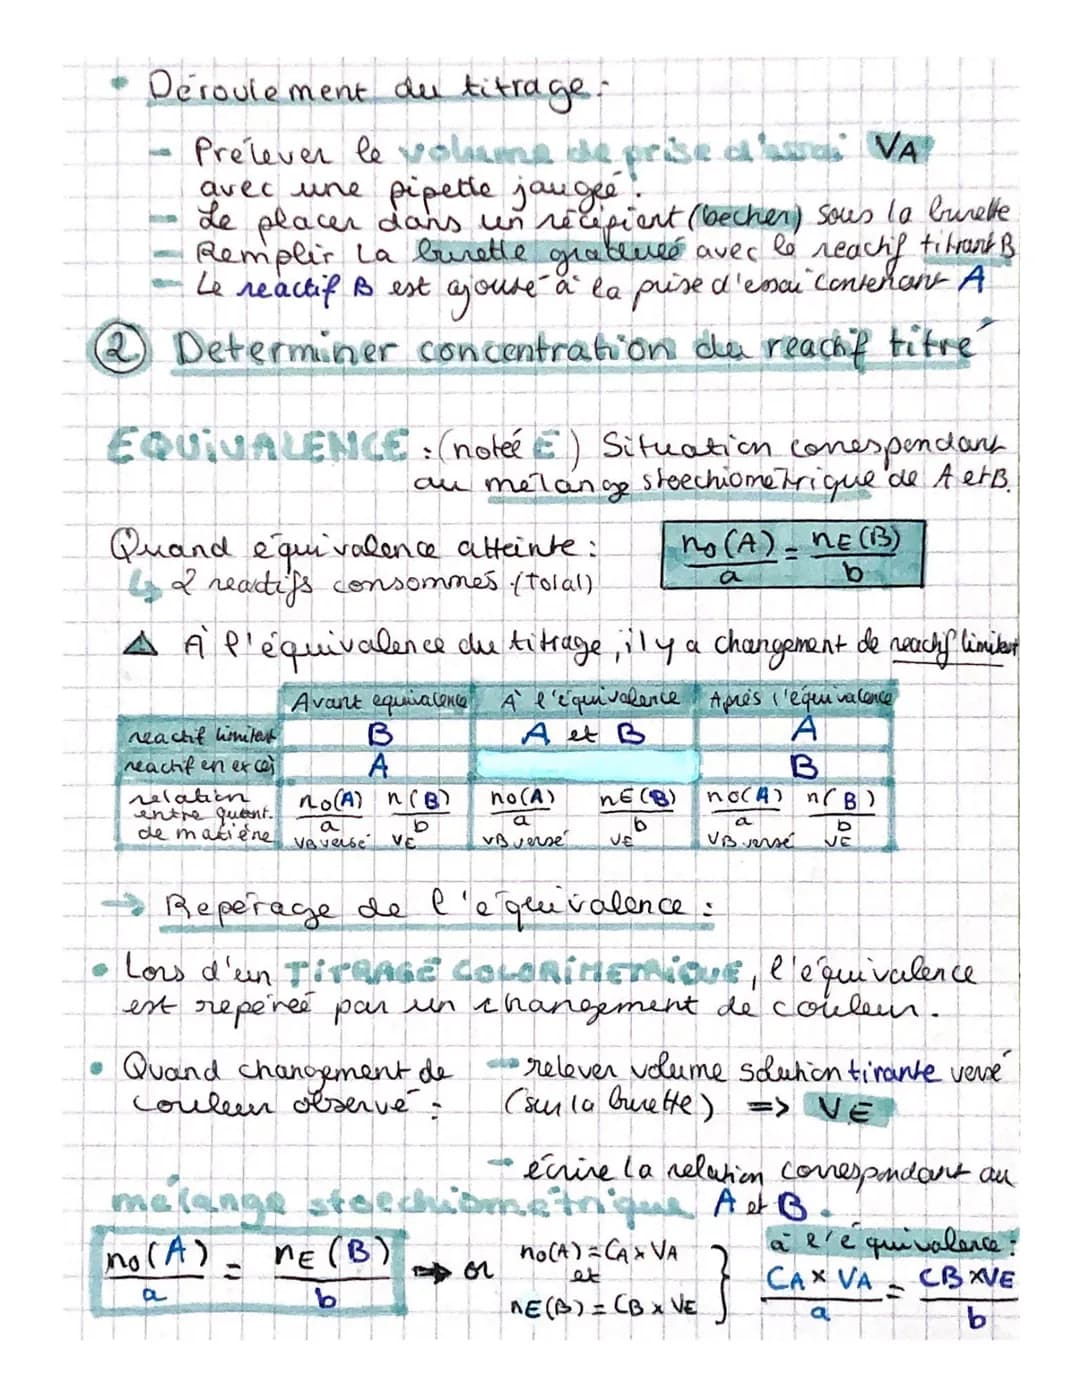 • Déroulement du titrage :
- Prélever le volume de prise d'essai VA
avec une pipette jaugée.
- Le placer dans un récipient (becher) sous la burette
- Remplir la burette graduée avec le reactif titrant B
- Le reactif B est ajouté à la prise d'essai contenant A
② Determiner concentration du reactif titré
EQUIVALENCE : (notée E) Situation correspondant
au mélange stoechiométrique de A et B.
Quand équivalence atteinte :
↳ 2 reactifs consommés (total)
no(A)/a = nE(B)/b
⚠ À l'équivalence du titrage, il y a changement de reactif limitant
Avant equivalence À l'équivalence Après l'équivalence
reactif limitant B A et B A
reactif en excès A B
relation entre quant. de matière no(A)/a n(B)/b no(A)/a nE(B)/b no(A)/a n(B)/b
VB versé VE VB versé VE VB versé VE
→ Repérage de l'équivalence :
• Lors d'un TITRAGE COLORIMETRIQUE, l'équivalence
est repérée par un changement de couleur.
• Quand changement de
couleur observé :
→ relever volume solution tirante versé
(sur la burette) => VE
→ écrire la relation correspondant au
mélange stoechiométrique A et B.
no(A)/a = nE(B)/b → or
no(A) = CA x VA
et
nE(B) = CB x VE
à l'équivalence :
CA x VA/a = CB x VE/b